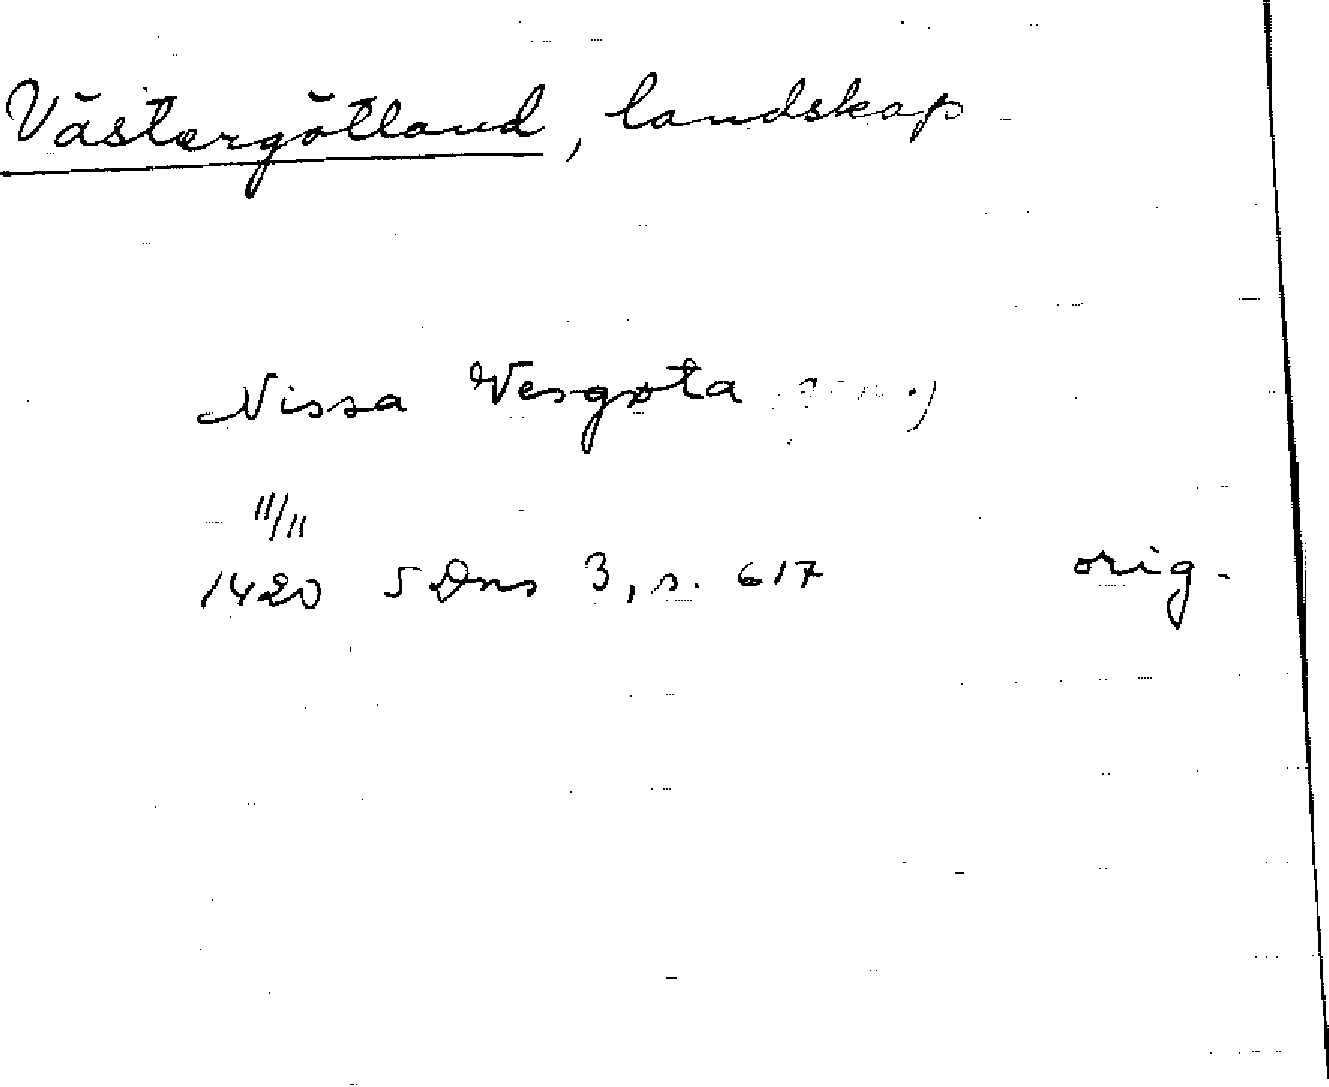 Västergötland, landskap
Nissa Vesgøta (gen.)
11/11
1420 SDns 3, s. 617 orig.